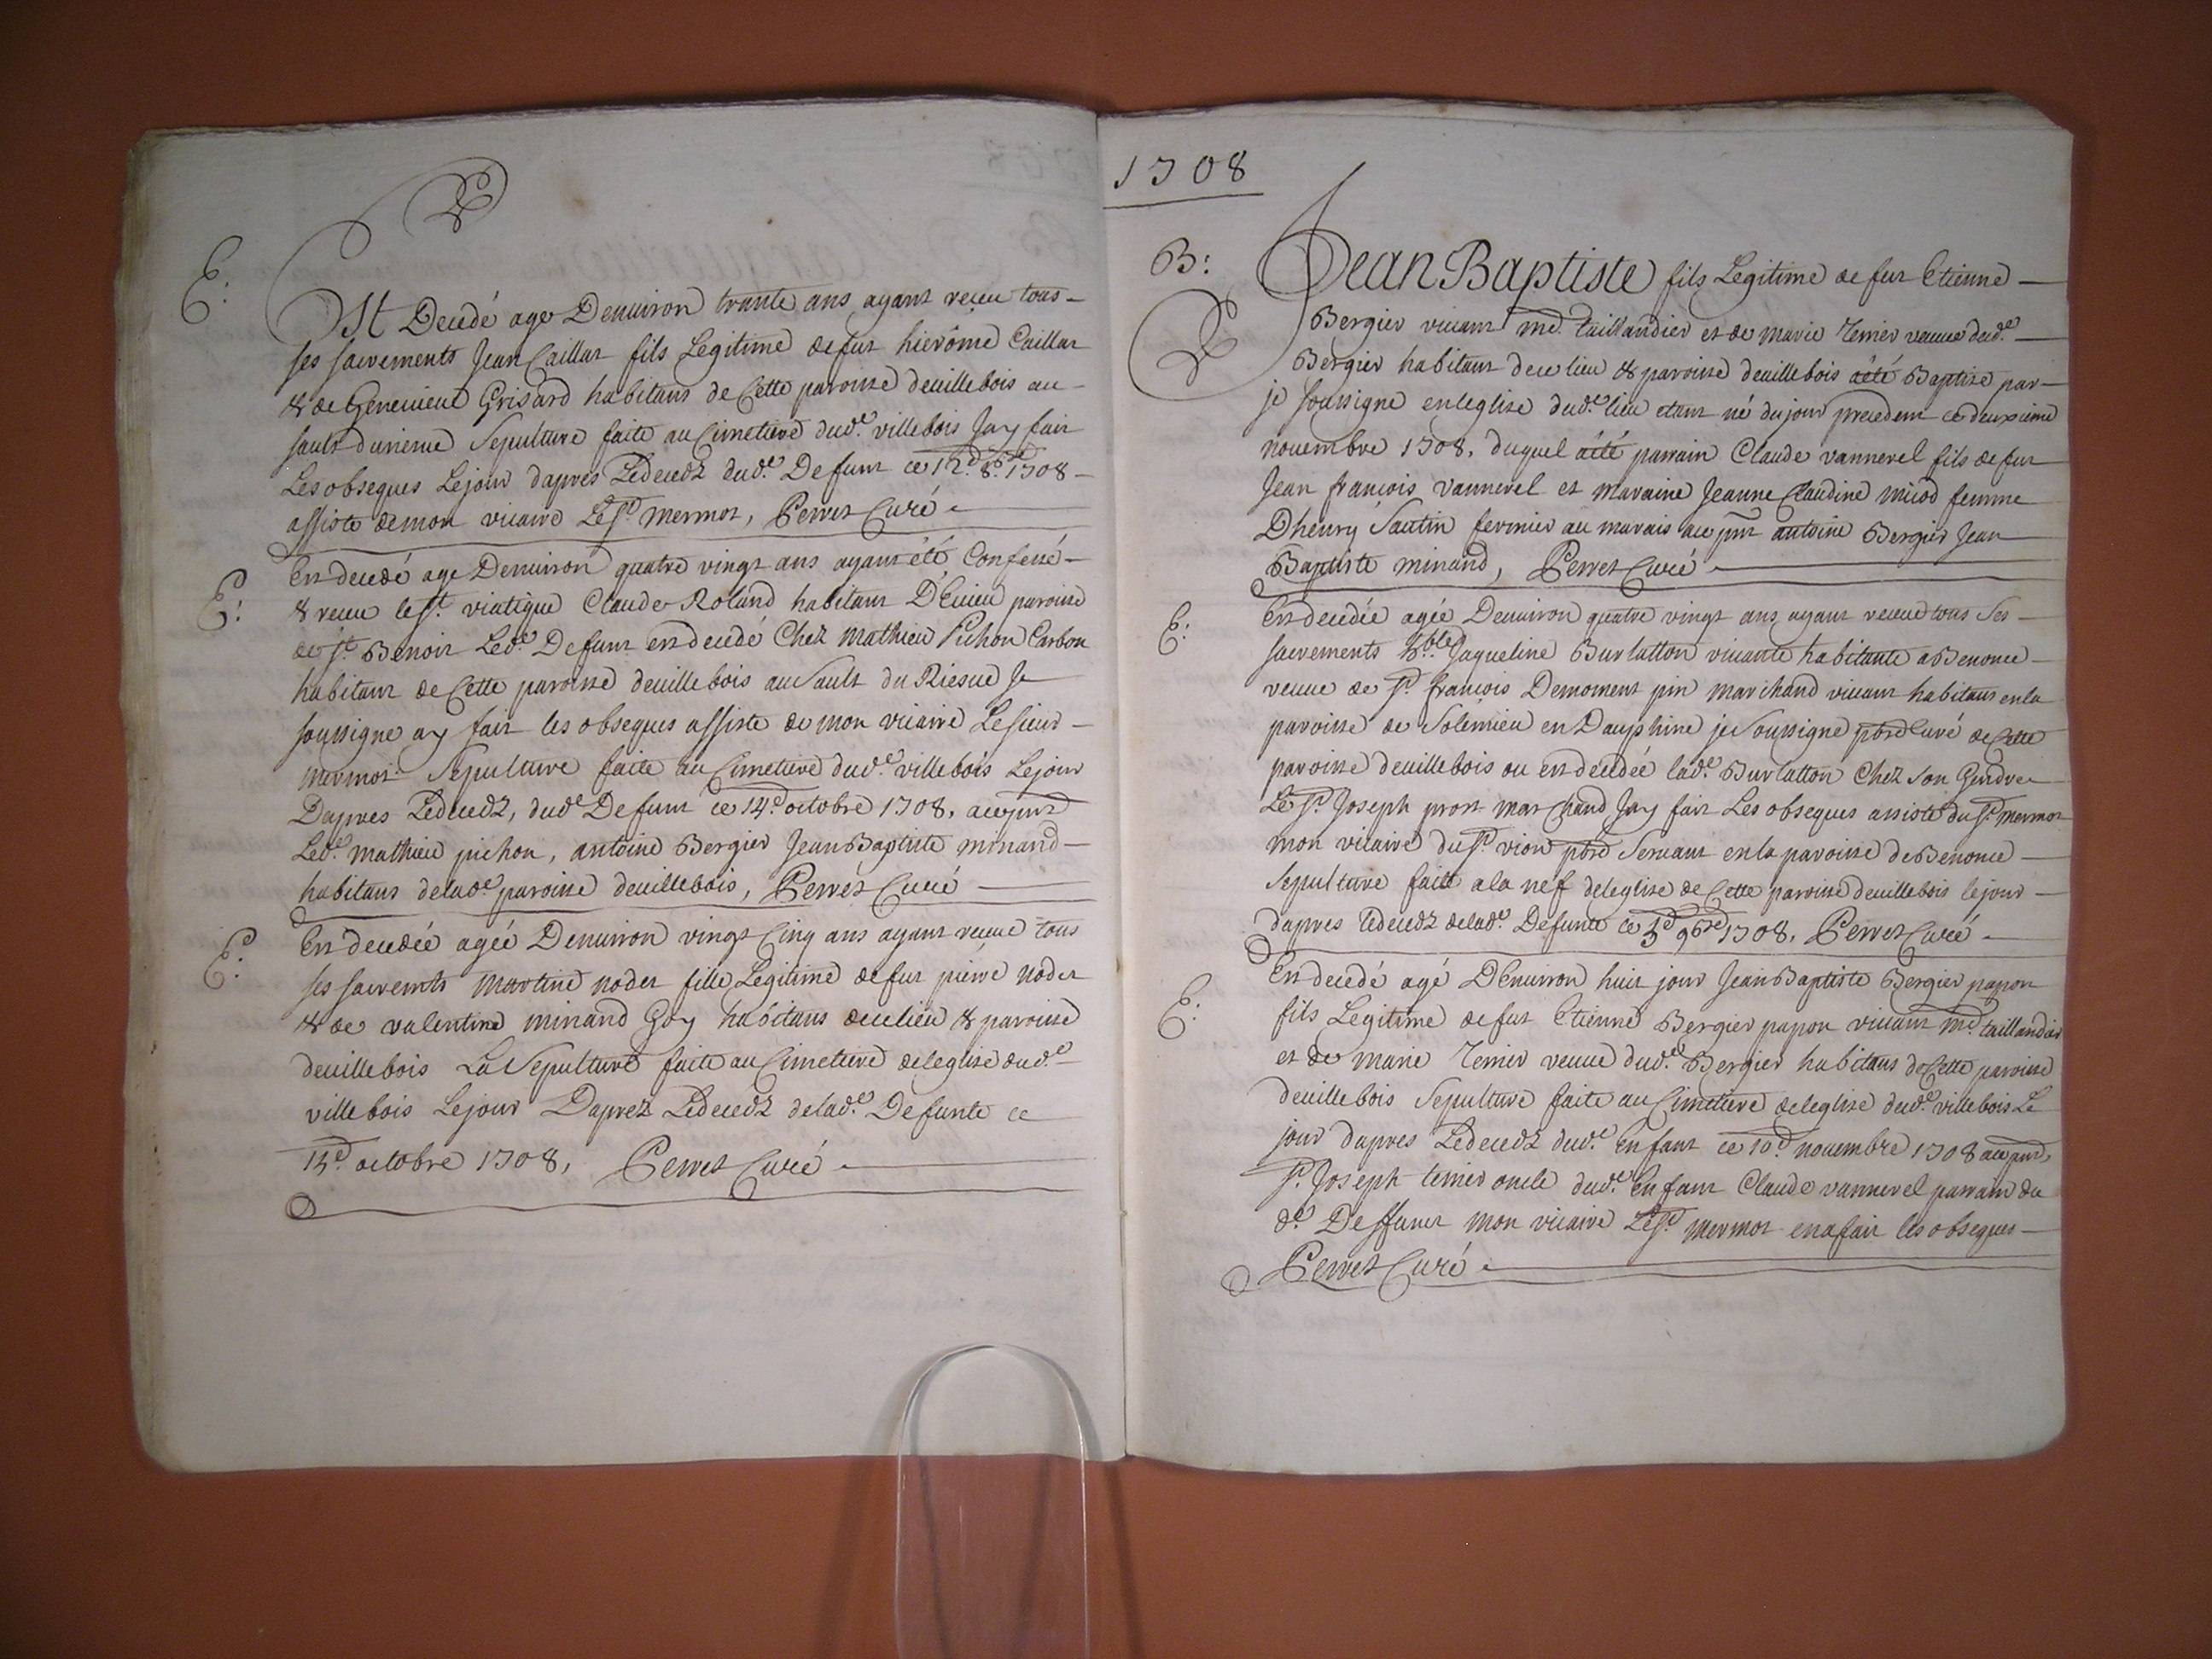 E:
Est Decedé age Denuiron trante ans ayant receu tous
ses sacrements Jean Caillat fils Legitime de fut hierôme Caillat
& de Geneuieue Grisard habitans de Cette paroisse deuillebois au
sault Sepulture faite au Cimetiere dud.e villebois Jay fait
Les obseques Lejour dapres Ledecedz dud.e Defunt ce 12.d 8.bre 1708
assiste demon vicaire Le Sr. mermot, Perret Curé
E:
Est decedé age Denuiron quatre vingt ans ayant été Confessé
& receu le St. viatique Claude Roland habitant paroisse
de St. Benoit Led.e Defunt est decedé Chez Mathieu Pichon Carbon
habitant de Cette paroisse deuillebois au Sault du Je
soussigne ay fait les obseques assiste de mon vicaire Le sieur
mermot Sepulture faite au Cimetiere dud.e villebois Lejour
Dapres Ledecedz, dud.e Defunt ce 14.d octobre 1708, aux pnts
Led.e Mathieu pichon, antoine Bergier Jean Baptiste minand
habitans delad.e paroisse deuillebois, Perret Curé
E:
Est decedée agée Denuiron vingt Cinq ans ayant receue tous
ses sacremts Martine nodet fille Legitime de fut pierre nodet
& de valentine minand Goy habitans dece lieu & paroisse
deuillebois La Sepulture faite au Cimetiere deleglise dud.e
villebois Lejour Daprez Ledecedz delad.e Defunte ce
octobre 1708, Perret Curé
1708
B:
Jean Baptiste fils Legitime de fut Etienne
Bergier viuant me. taillandier et de marie Terrier veuue dud.e
Bergier habitant dece lieu & paroisse deuillebois aété Baptise par
je soussigne enleglise dud.e lieu etant né dujour precedent ce deuxieme
nouembre 1708, duquel aété parrain Claude vannerel fils de fut
Jean francois vannerel et maraine Jeanne Claudine micod femme
Dhenry Sautin fermier au marais aux pnts antoine Bergier Jean
Baptiste minand, Perret Curé
E:
Est decedée agée Denuiron quatre vingt ans ayant receue tous ses
sacrements h.ble Jaqueline Burlatton viuante habitante a Benonce
veuue de Sr. francois Demoment marchand viuant habitant en la
paroisse de Solemieu en Dauphine je Soussigne pbre Curé de Cette
paroisse deuillebois ou est decedée lad.e Burlatton Chez son Gendre
Le Sr. Joseph prost marchand Jay fait Les obseques assisté du Sr. mermot
mon vicaire du Sr. vion pbre Seruant enla paroisse de Benonce
Sepulture faite ala nef deleglise de Cette paroisse deuillebois lejour
dapres ledecedz delad.e Defunte ce 9bre 1708, Perret Curé
E:
Est decedé agé Denuiron huit jour Jean Baptiste Bergier papon
fils Legitime de fut Etienne Bergier papon viuant me. taillandier
et de marie Terrier veuue dud.e Bergier habitans de Cette paroisse
deuillebois Sepulture faite au Cimetiere deleglise dud.e villebois Le
jour dapres Ledecedz dud.e Enfant ce 10.d nouembre 1708 aux pnts,
Sr. Joseph terrier oncle dud.e Enfant Claude vannerel parrain du
d.e Deffunct mon vicaire Le Sr. mermot en a fait les obseques
Perret Curé